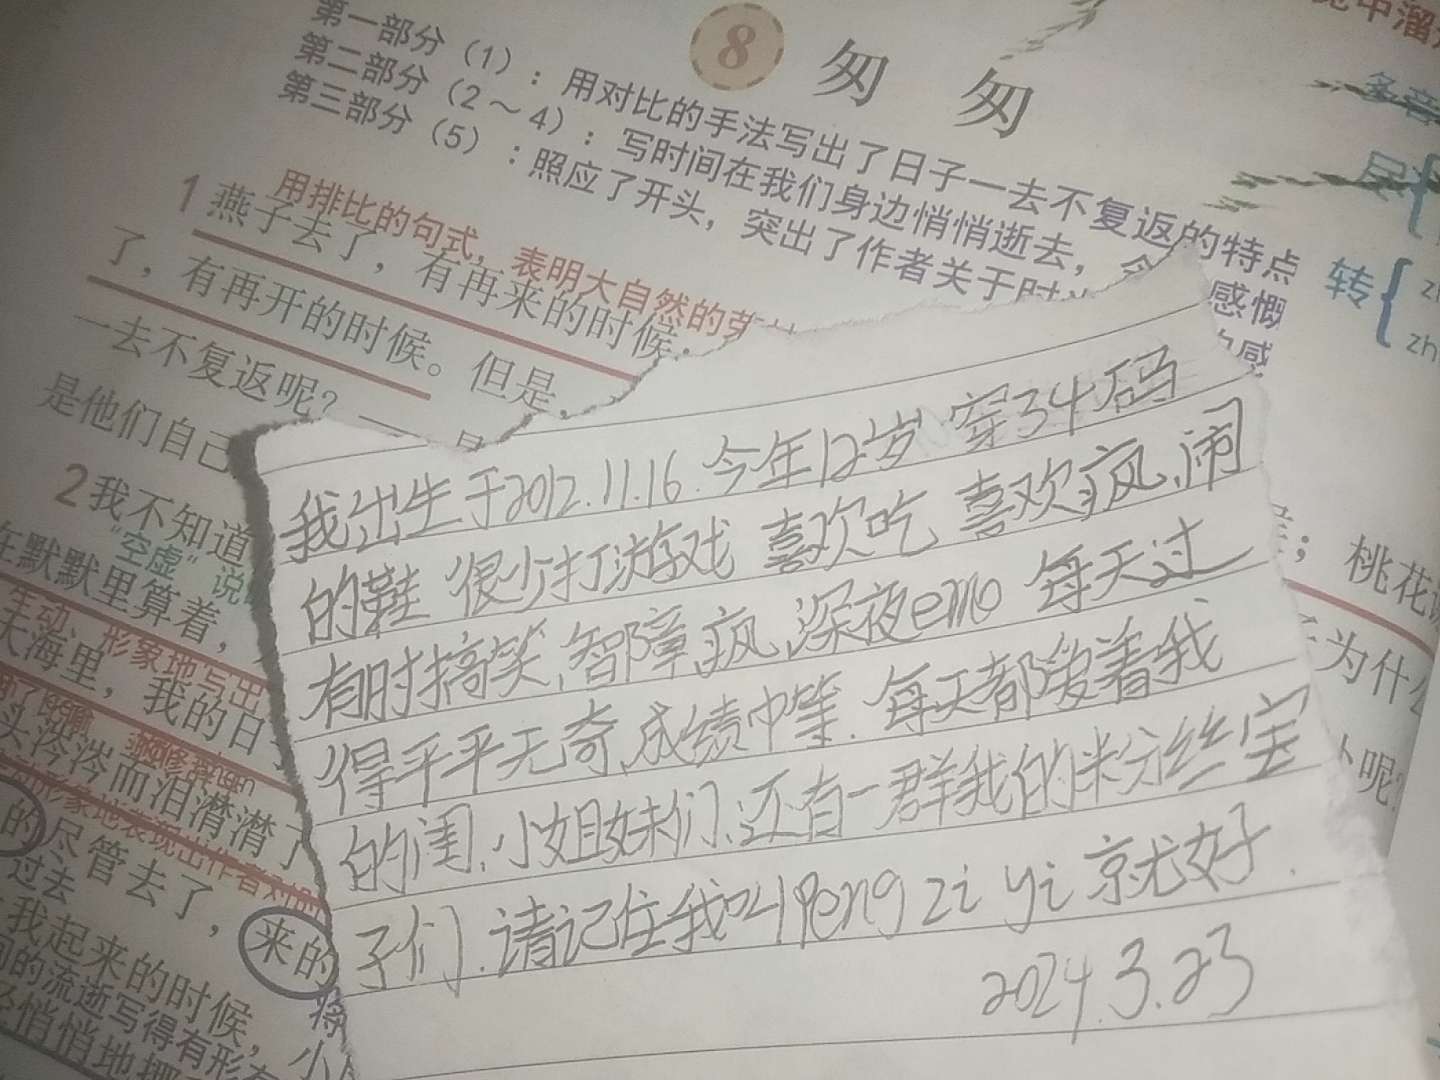 8 匆 匆
第一部分（1）：用对比的手法写出了日子一去不复返的特点
第二部分（2～4）：写时间在我们身边悄悄逝去，感慨
第三部分（5）：照应了开头，突出了作者关于时
用排比的句式，表明大自然的
1 燕子去了，有再来的时候，
了，有再开的时候。但是，
一去不复返呢？
是他们自己
2 我不知道
"空虚"说
在默默里算着，
生动、形象地写出
大海里，我的日
头涔涔而泪潸潸了
的尽管去了，来的
过去
我起来的时候，小
的流逝写得有形
悄悄地挪
我出生于2012.11.16.今年12岁 穿34码
的鞋 很少打游戏 喜欢吃 喜欢疯、闹
有时搞笑、智障、疯、深夜emo 每天过
得平平无奇,成绩中等. 每天都爱着我
的闺、小姐妹们、还有一群我的粉丝宝
子们、请记住我叫Peng zi yi 就好.
2024.3.23
转
桃花
为什么
呢